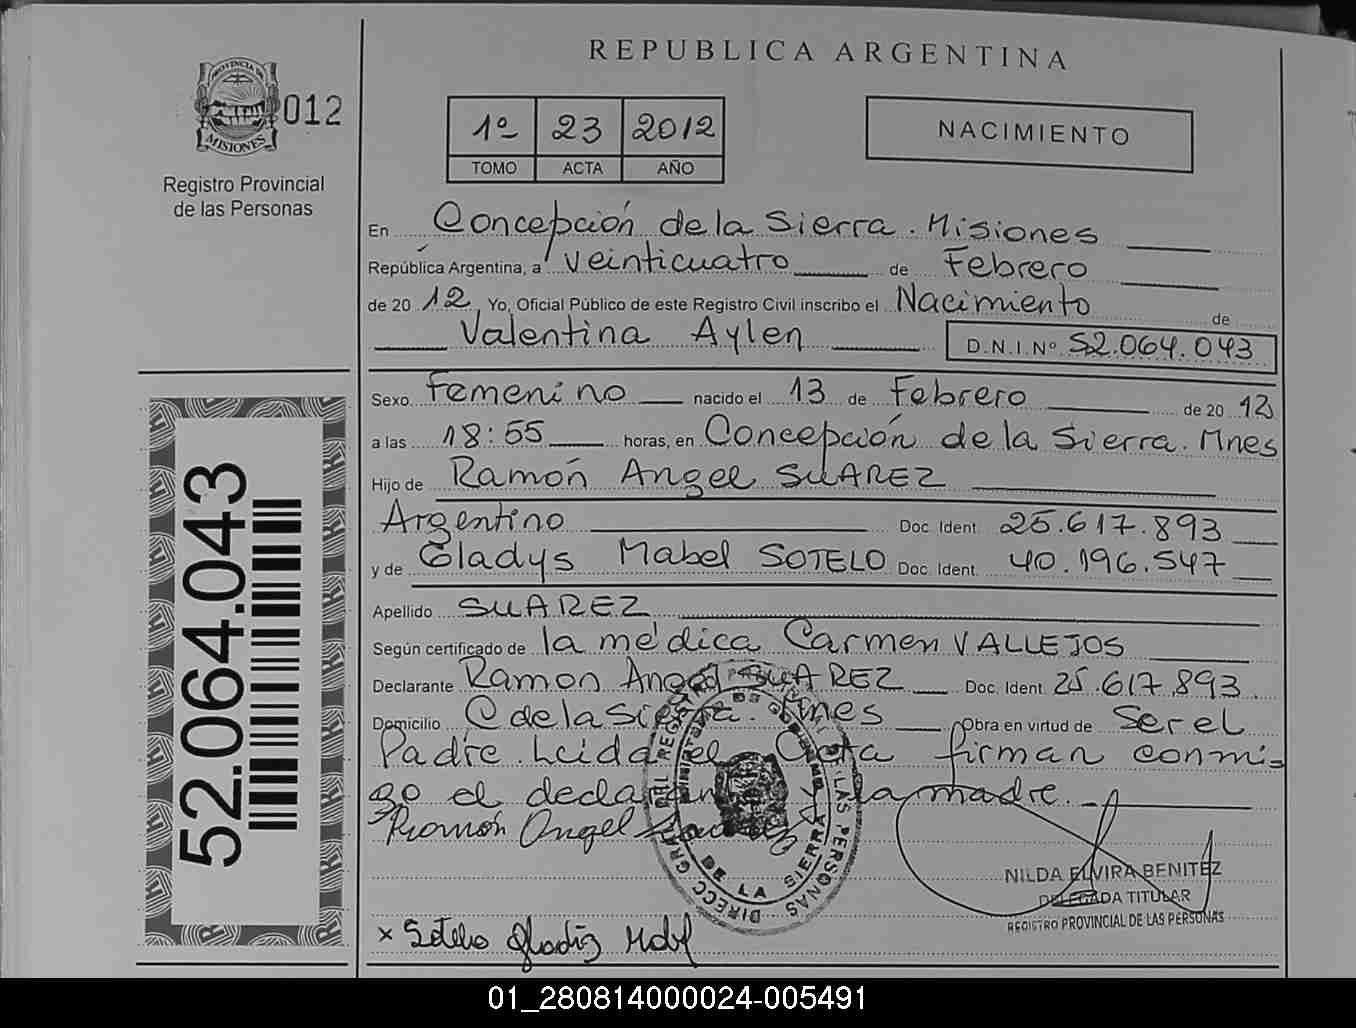 REPUBLICA ARGENTINA
PROVINCIA DE
MISIONES
012
Registro Provincial
de las Personas
1º 23 2012
TOMO ACTA AÑO
NACIMIENTO
En Concepción de la Sierra. Misiones
República Argentina, a veinticuatro de Febrero
de 2012 Yo, Oficial Público de este Registro Civil inscribo el Nacimiento de
Valentina Aylen D.N.I.Nº 52.064.043
Sexo Femenino nacido el 13 de Febrero de 2012
a las 18:55 horas, en Concepción de la Sierra. Mnes
Hijo de Ramón Angel SUAREZ
Argentino Doc. Ident. 25.617.893
y de Gladys Mabel SOTELO Doc. Ident. 40.196.547
Apellido SUAREZ
Según certificado de la médica Carmen VALLEJOS
Declarante Ramon Angel SUAREZ Doc. Ident. 25.617.893
Domicilio C de la Sierra. Mnes Obra en virtud de Ser el
Padre. Leida el Acta firman conmi=
go el declarante y la madre.
Ramón Angel
DIRECC GRAL DEL REGISTRO PROVINCIAL DE LAS PERSONAS
MINISTERIO DE GOBIERNO
DE LA SIERRA
NILDA ELVIRA BENITEZ
DELEGADA TITULAR
REGISTRO PROVINCIAL DE LAS PERSONAS
x Sotelo Gladis Mabel
52.064.043
01_280814000024-005491